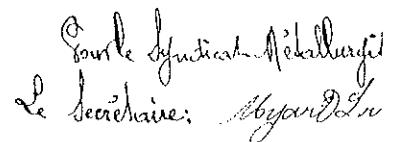 Pour le Syndicat Métallurgit
Le Secrétaire: